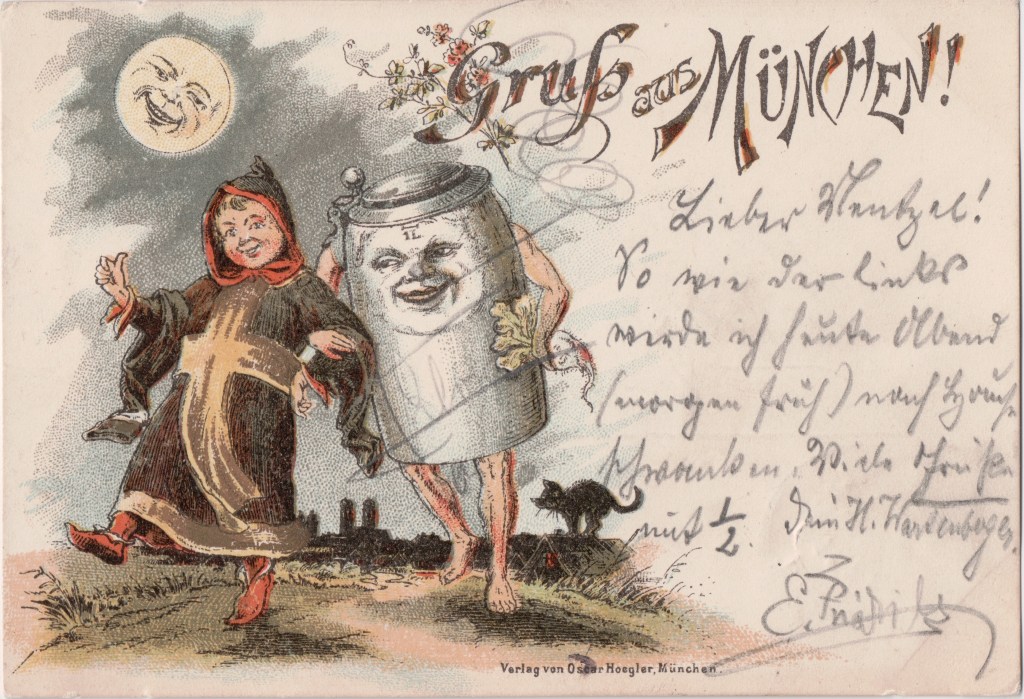 Gruß aus MÜNCHEN!
Lieber Wentzel!
So wie der links
werde ich heute Abend
(morgen früh) nach Hause
schwanken. Viele Grüße
mit 1/2. Dein H.
E.
Verlag von Oscar Hoegler, München.